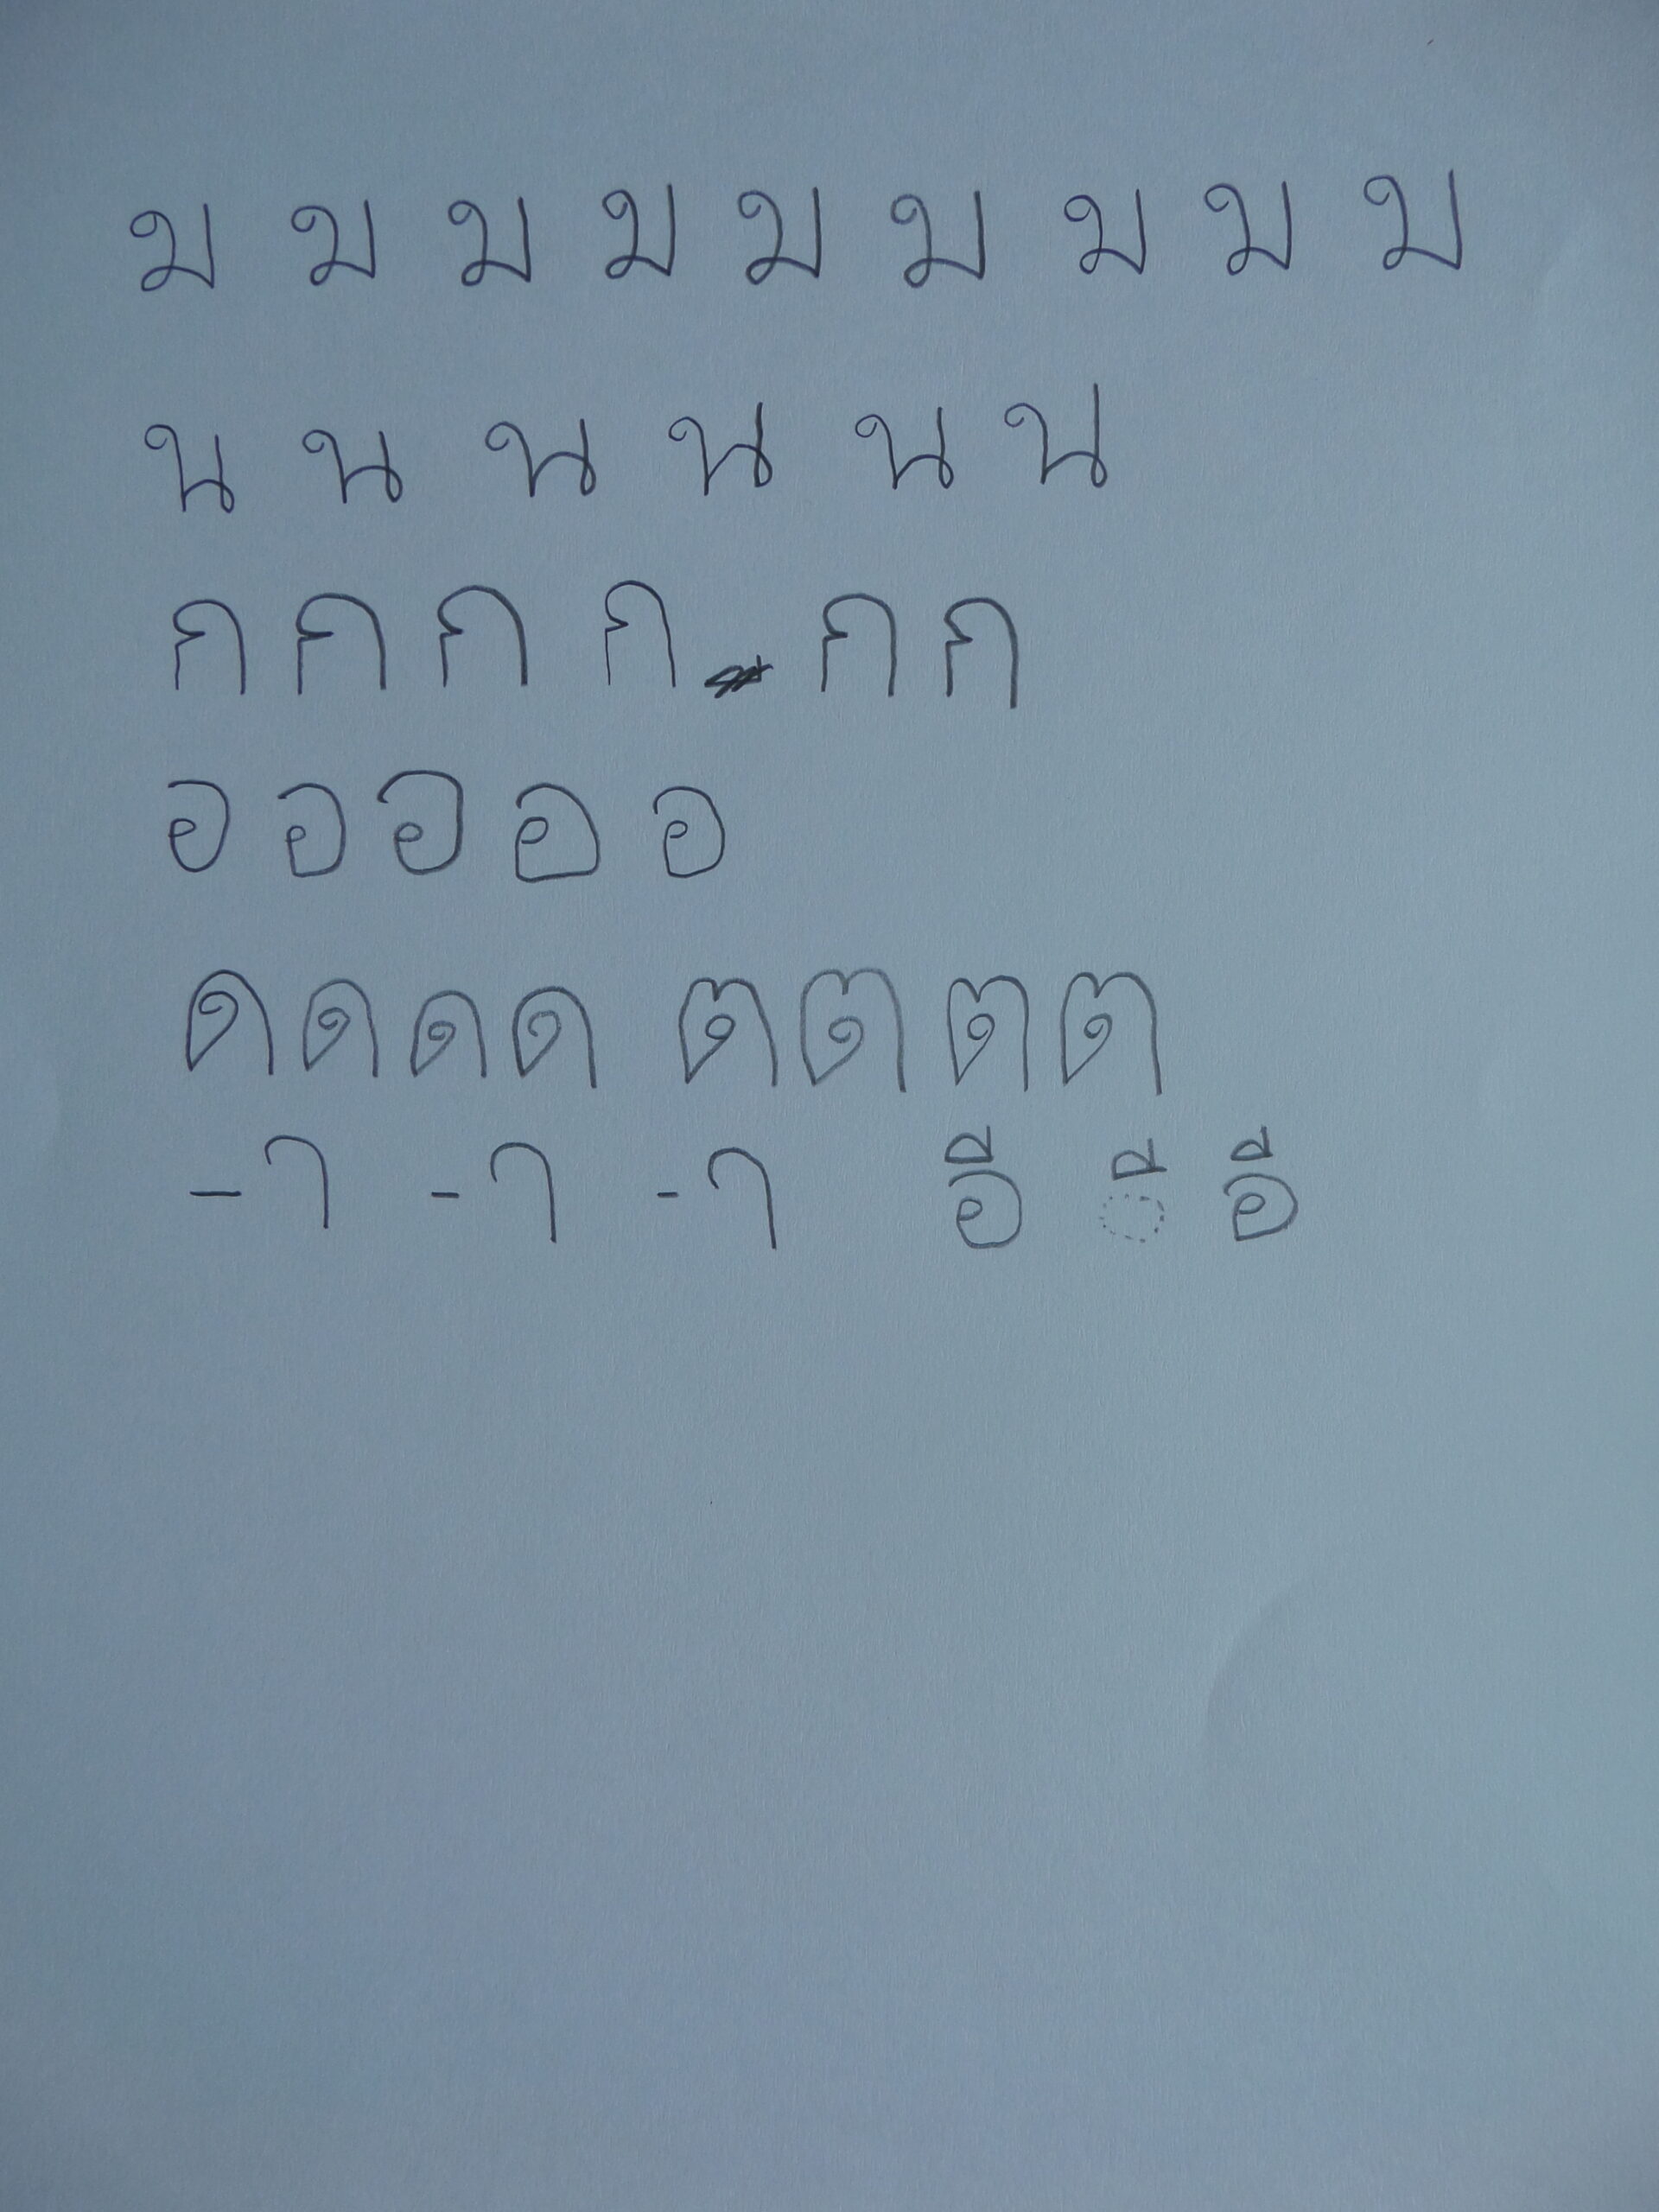 ม ม ม ม ม ม ม ม ม
น น น น น น
ก ก ก ก ก ก
อ อ อ อ อ
ด ด ด ด ต ต ต ต
-า -า -า อี ◌ี อี